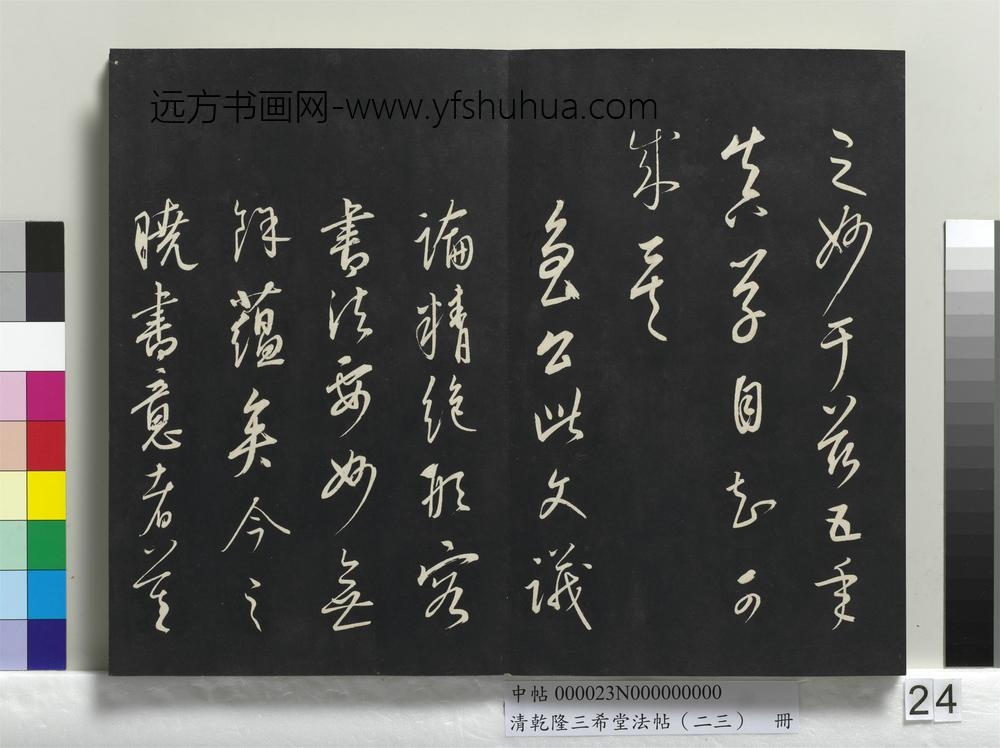 远方书画网-www.yfshuhua.com
之妙于茲五年
真草自知可
成矣
魯公此文議
論精絕形容
書法要妙無
餘蘊矣今之
曉書意者
中帖 000023N000000000
清乾隆三希堂法帖（二三） 冊
24